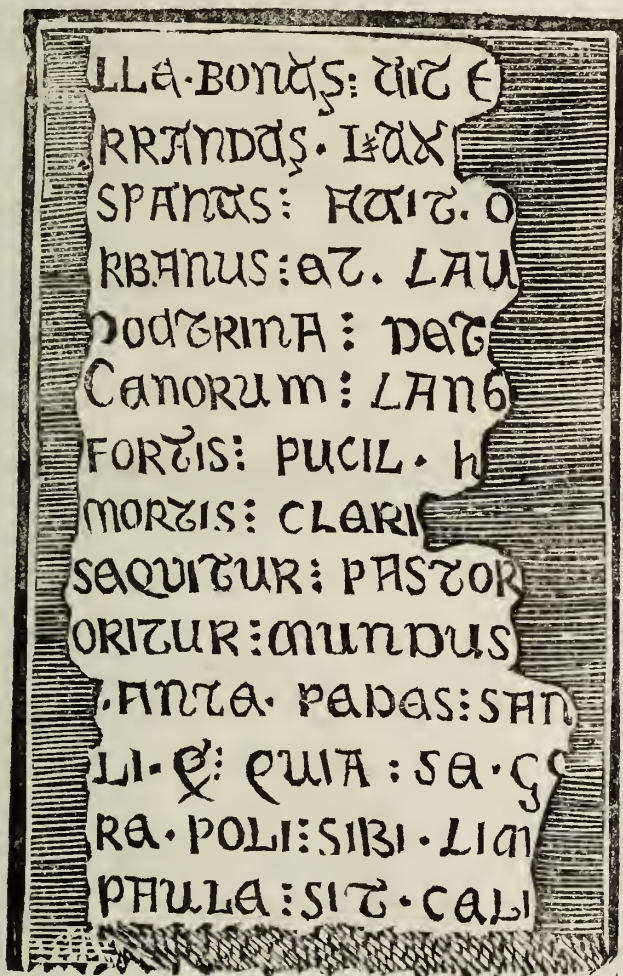 LLE·BONUS⁝ UIT E
RRANDUS· LUX
SPANUS⁝ FUIT· O
RBANUS⁝ET· LAU
DOCTRINA⁝ DET
CANORUM⁝ LANG
FORTIS⁝ PUGIL· h
MORTIS⁝ CLERI
SEQUITUR⁝ PASTOR
ORITUR⁝MUNDUS
·ANTE· PEDES⁝SAN
LI· QUIA⁝SE·
RE·POLI⁝SIBI·LIM
PAULE⁝SIT·CELI